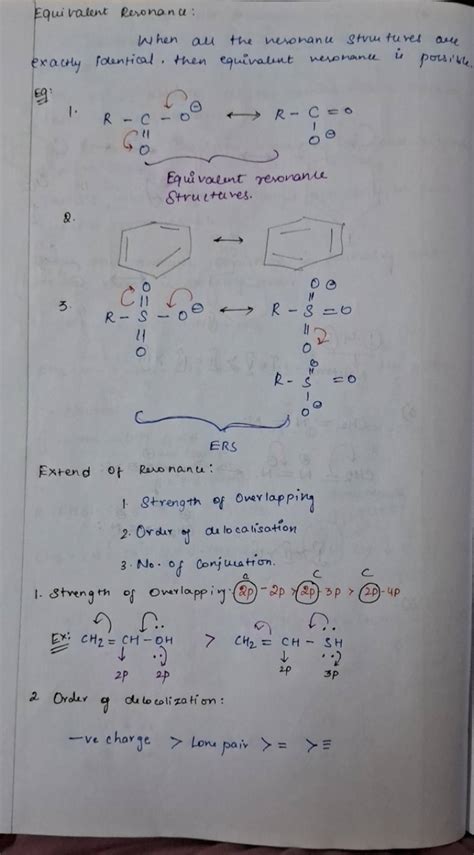 Equivalent Resonance:
When all the resonance structures are
exactly identical. then equivalent resonance is possible.
Eg:
1. R - C - O⊖ ↔ R - C = O
|| |
O O⊖
Equivalent resonance
Structures.
2. ↔
3. O O⊖
|| ||
R - S - O⊖ ↔ R - S = O
|| ||
O O
O
||
R - S = O
|
O⊖
ERS
Extend of Resonance:
1. Strength of Overlapping
2. Order of delocalisation
3. No. of Conjucation.
C C C
1. Strength of Overlapping: 2p - 2p > 2p - 3p > 2p - 4p
Ex: CH2 = CH - OH > CH2 = CH - SH
2p 2p 2p 3p
2 Order of delocalization:
-ve charge > Lone pair > = > ≡